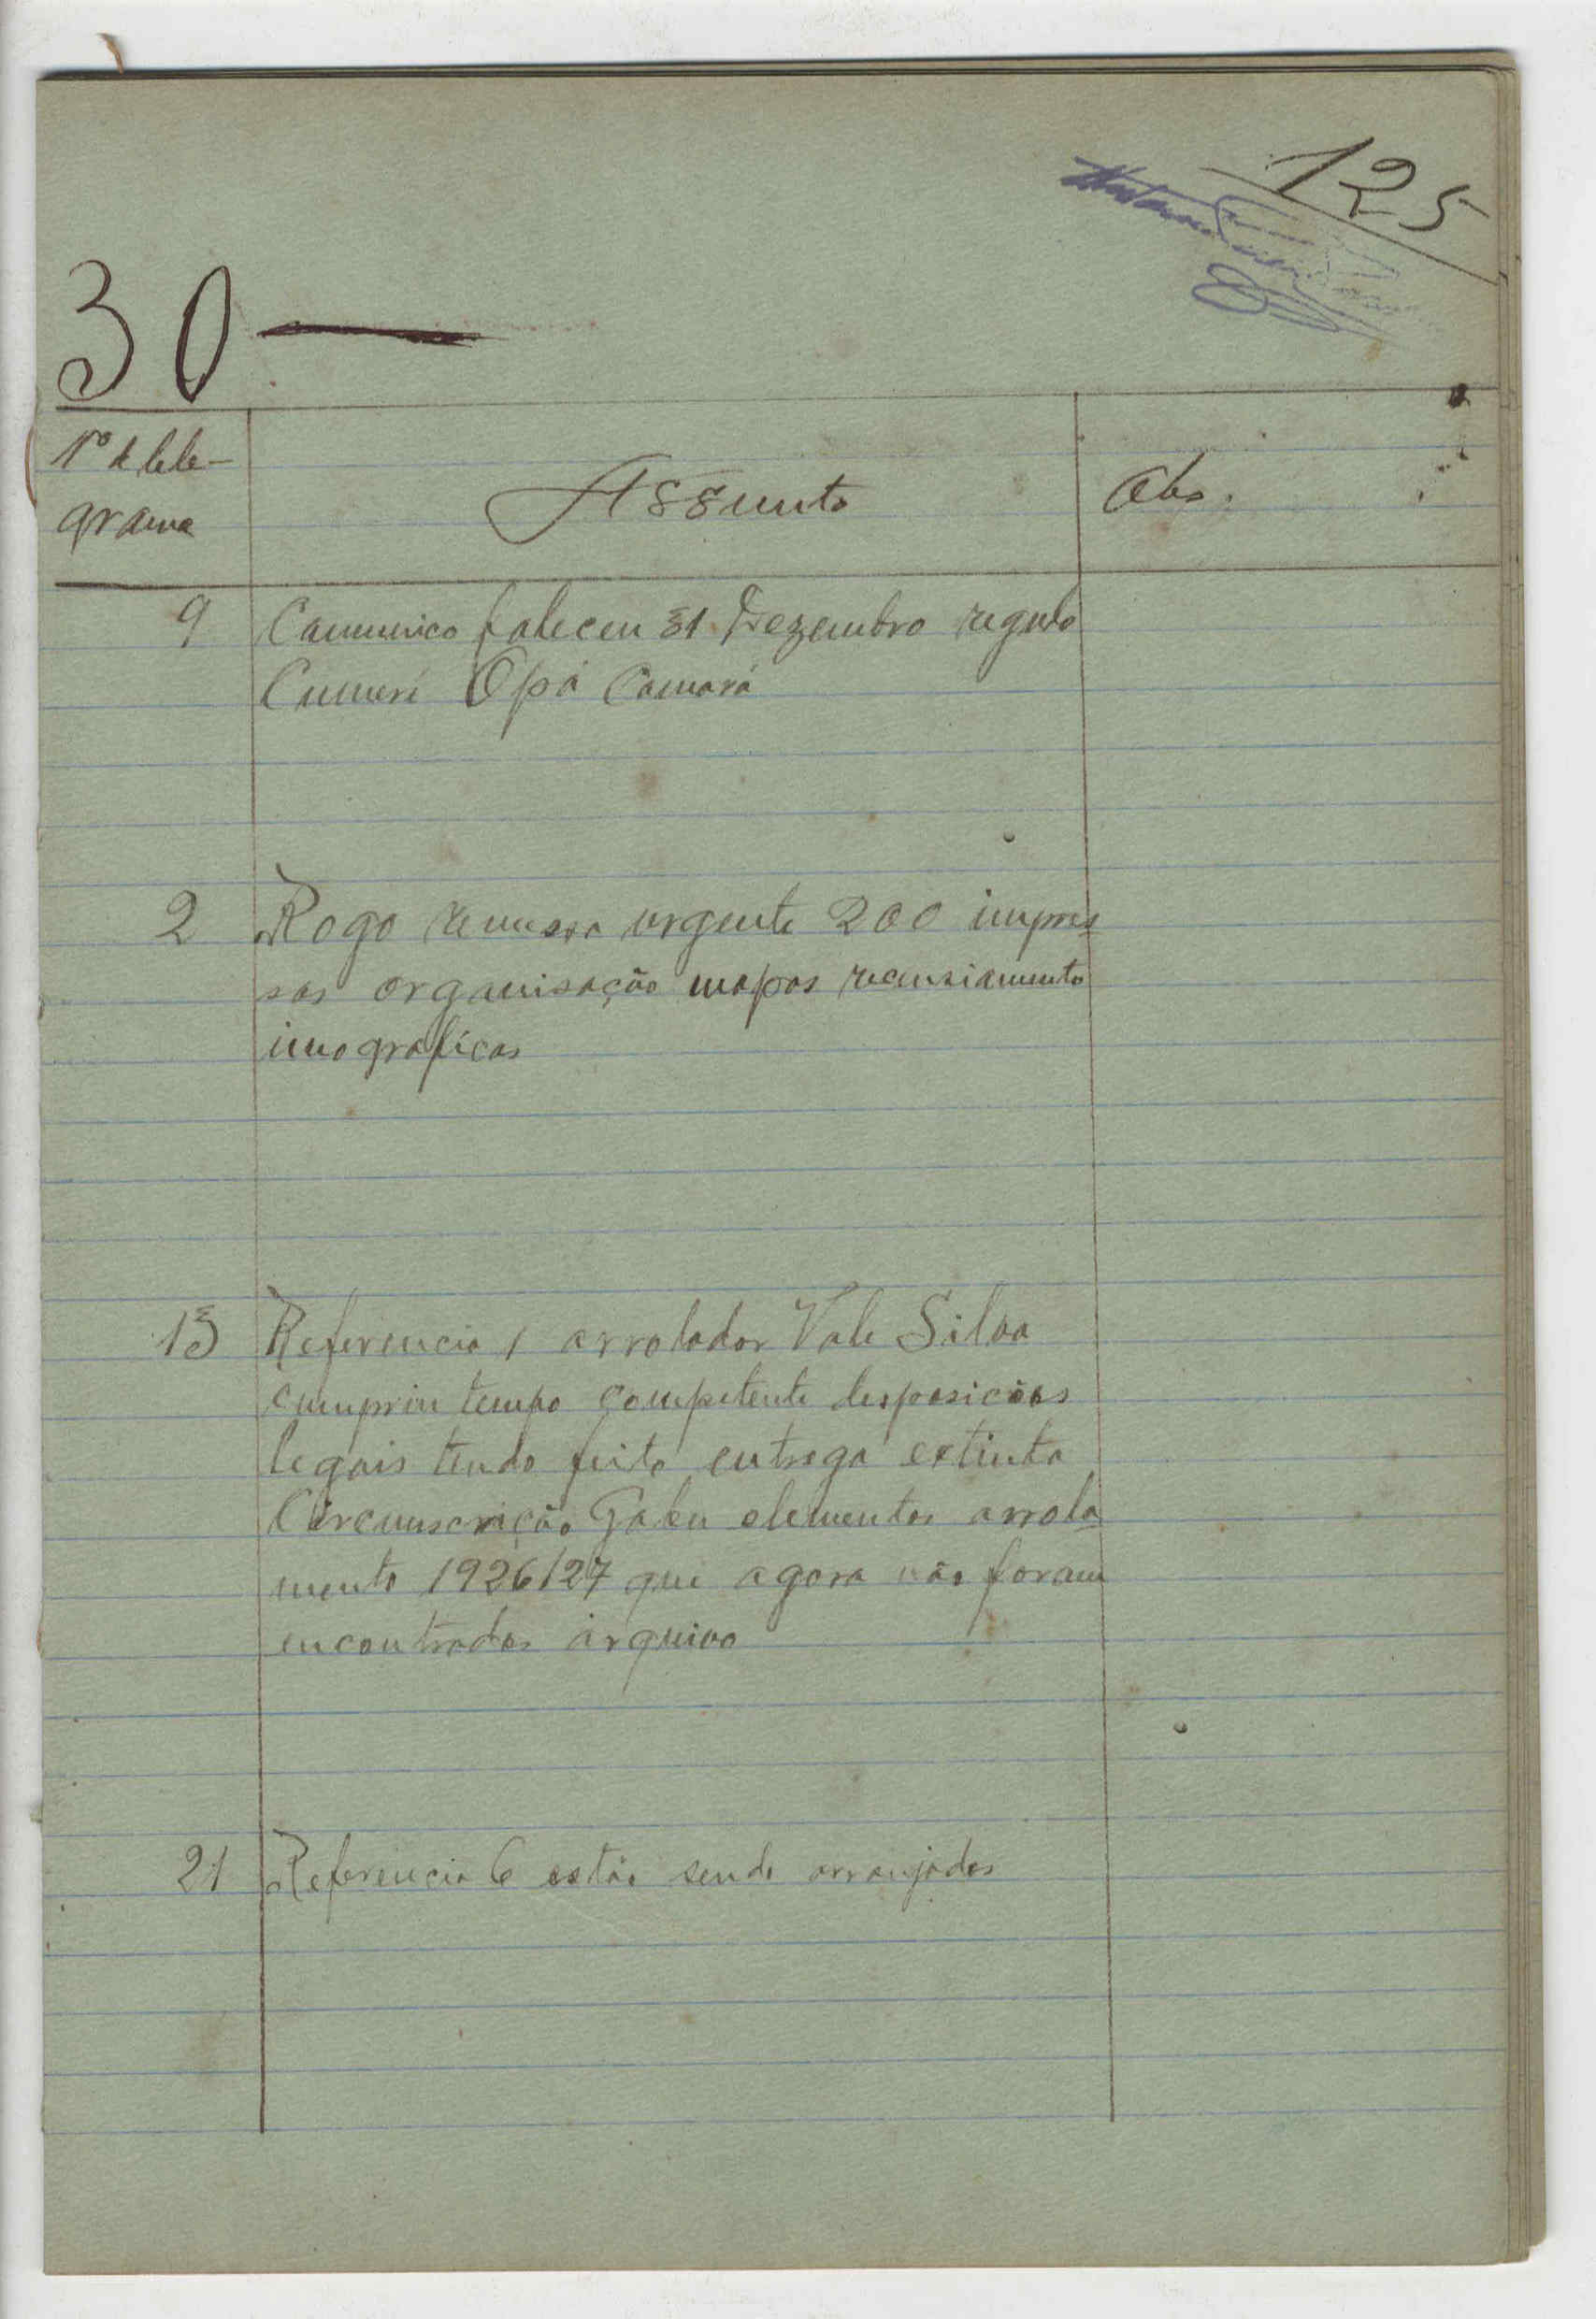 125
30 —
Nº de tele-
grama
Assunto
Obs.
9 Comunico faleceu 31 Dezembro regulo
Cumeri Opá Camará
2 Rogo remessa urgente 200 impres
sos organisação mapas recensiamento
imograficas
13 Referencia 1 arrolador Vale Silva
cumpriu tempo competente desposicões
legais tendo feito entrega extinta
Circunscrição Gabu elementos arrola
mento 1926/27 que agora não foram
encontrados arquivo
21 Referencia 6 estão sendo arranjados